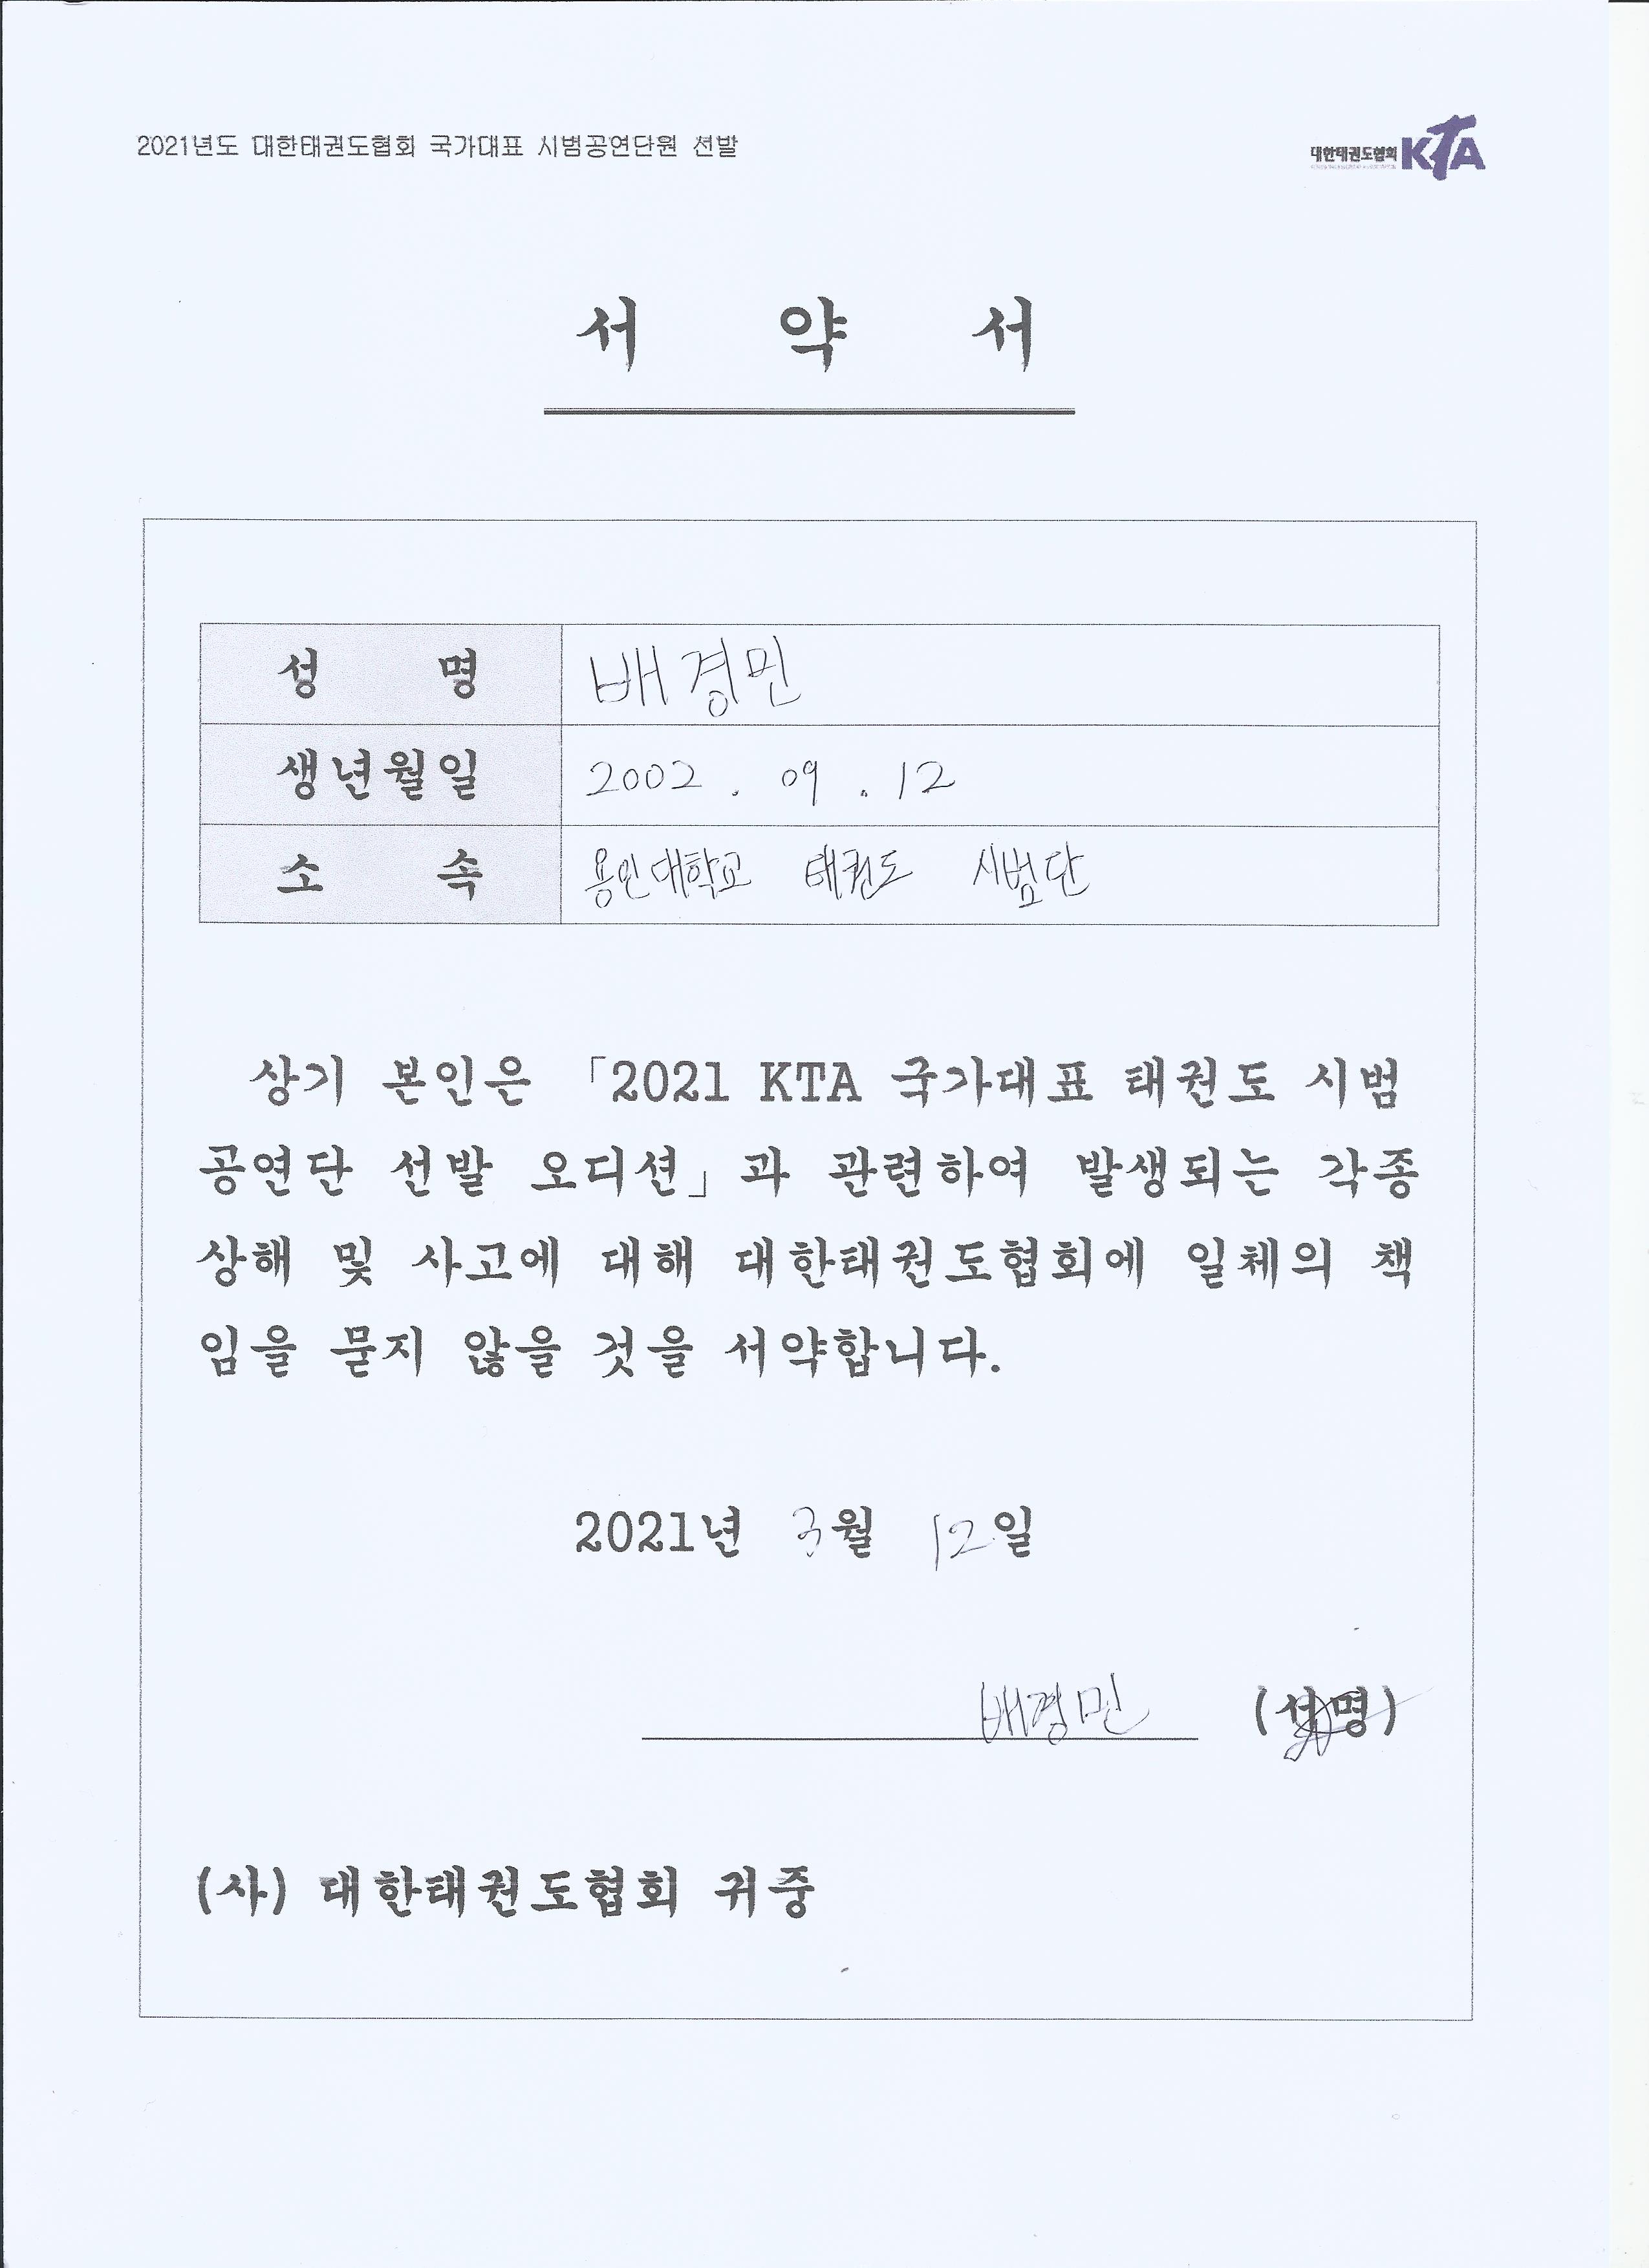 2021년도 대한태권도협회 국가대표 시범공연단원 선발
대한태권도협회 KTA
서 약 서
성 명 배경민
생년월일 2002. 09. 12
소 속 용인대학교 태권도 시범단
상기 본인은 「2021 KTA 국가대표 태권도 시범
공연단 선발 오디션」과 관련하여 발생되는 각종
상해 및 사고에 대해 대한태권도협회에 일체의 책
임을 묻지 않을 것을 서약합니다.
2021년 3월 12일
배경민 (서명)
(사) 대한태권도협회 귀중